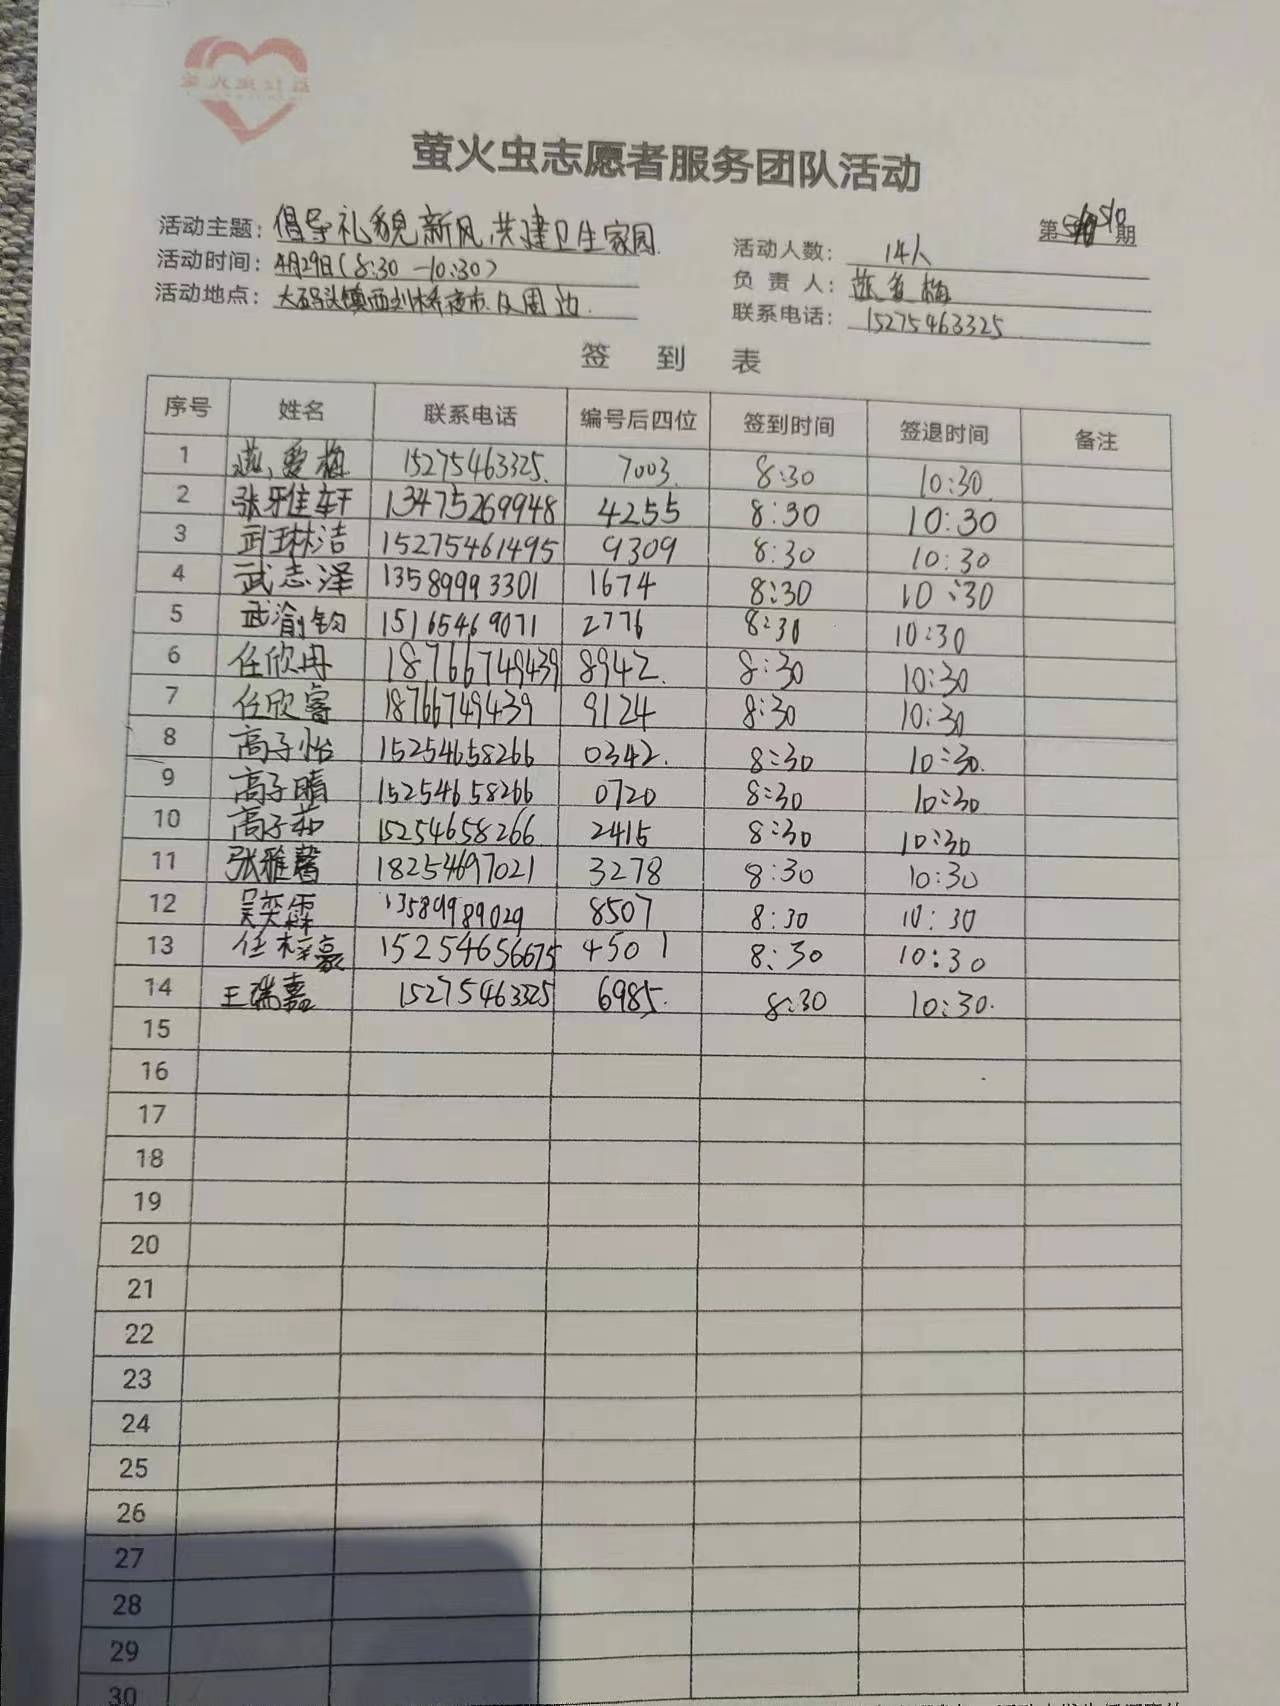 萤火虫志愿者服务团队活动
第510期
活动主题：倡导礼貌新风,共建卫生家园.
活动时间：4月29日(8:30-10:30)
活动地点：大码头镇西刘桥夜市及周边.
活动人数：14人
负责人：燕爱梅
联系电话：15275463325
签到表
序号 姓名 联系电话 编号后四位 签到时间 签退时间 备注
1 燕爱梅 15275463325. 7003. 8:30 10:30.
2 张雅轩 13475269948 4255 8:30 10:30
3 武琳洁 15275461495 9309 8:30 10:30
4 武志泽 13589993301 1674 8:30 10:30
5 武渝钧 15165469071 2776 8:30 10:30
6 任欣冉 18766749439 8942. 8:30 10:30
7 任欣睿 18766749439 9124 8:30 10:30
8 高子怡 15254658266 0342. 8:30 10:30.
9 高子晴 15254658266 0720 8:30 10:30
10 高子茹 15254658266 2415 8:30 10:30
11 张雅馨 18254697021 3278 8:30 10:30
12 吴奕霖 13589989029 8507 8:30 10:30
13 任梓豪 15254656675 4501 8:30 10:30
14 王瑞嘉 15275463325 6985. 8:30 10:30.
15
16
17
18
19
20
21
22
23
24
25
26
27
28
29
30